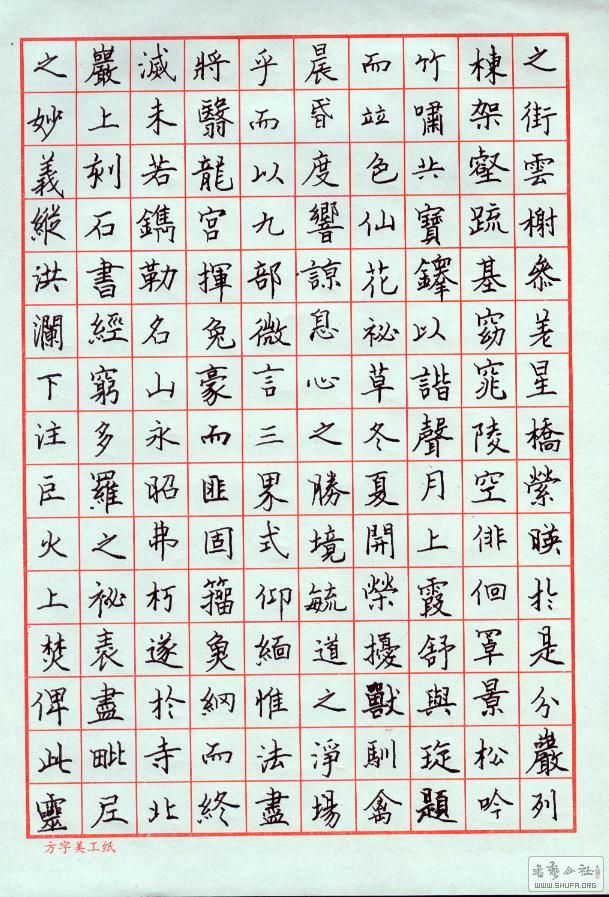 之街雲榭參差星橋縈暎於是分巖列
棟架壑疏基窈窕陵空徘徊罩景松吟
竹嘯共寶鐸以諧聲月上霞舒與琁題
而竝色仙花祕草冬夏開榮擾獸馴禽
晨昏度響諒息心之勝境毓道之淨場
乎而以九部微言三界式仰緬惟法盡
將翳龍宮揮兔豪而匪固籀魚網而終
滅未若鐫勒名山永昭弗朽遂於寺北
巖上刻石書經窮多羅之祕袠盡毗尼
之妙義縱洪瀾下注巨火上焚俾此靈
方字美工纸
书艺公社
WWW.SHUFA.ORG